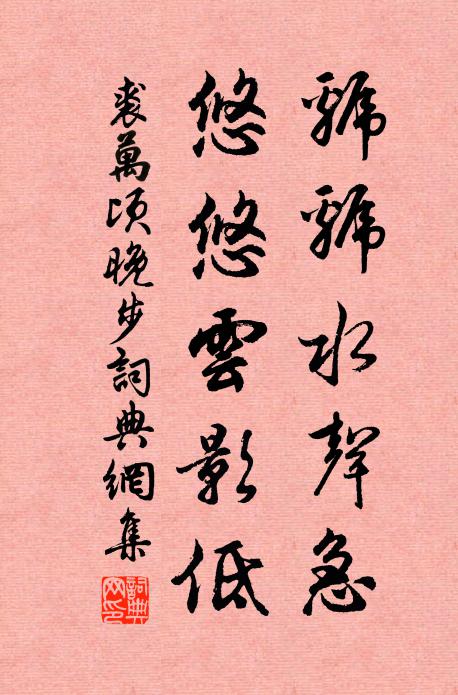 虢虢水聲急
悠悠雲影低
裘萬頃晚步詞典網集
詞典網印